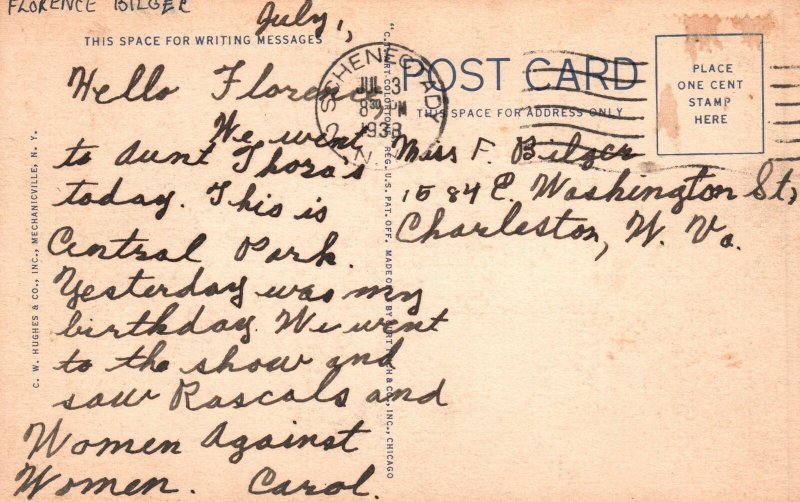 FLORENCE BILGER
July 1,
THIS SPACE FOR WRITING MESSAGES
Hello Florence
We went
to Aunt Thora's
today. This is
Central Park.
Yesterday was my
birthday. We went
to the show and
saw Rascals and
Women Against
Women. Carol.
C. W. HUGHES & CO., INC., MECHANICVILLE, N. Y.
"C.T. ART-COLORTONE" REG. U.S. PAT. OFF. MADE ONLY BY CURT TEICH & CO., INC., CHICAGO
SCHENECTADY
JUL 3
8 PM
1938
N.Y.
POST CARD
THIS SPACE FOR ADDRESS ONLY
PLACE
ONE CENT
STAMP
HERE
Miss F. Bilger
1584 E. Washington St,
Charleston, W. Va.